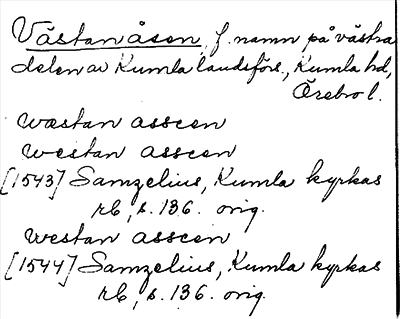 Västanåsen, f. namn på västra
delen av Kumla landsförs., Kumla hd,
Örebro l.
wæstan asscen
westan asscen
[1543] Samzelius, Kumla kyrkas
rb, s. 136. orig.
westan asscen
[1544] Samzelius, Kumla kyrkas
rb, s. 136. orig.